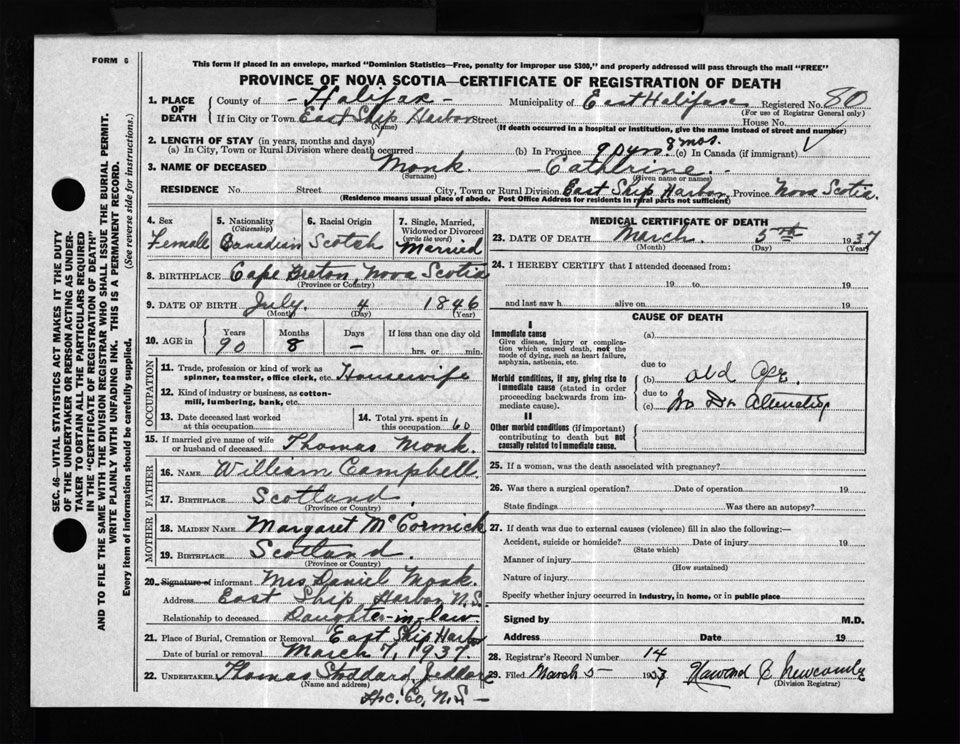 FORM 6
This form if placed in an envelope, marked "Dominion Statistics—Free, penalty for improper use $300," and properly addressed will pass through the mail "FREE"
PROVINCE OF NOVA SCOTIA—CERTIFICATE OF REGISTRATION OF DEATH
SEC. 46—VITAL STATISTICS ACT MAKES IT THE DUTY
OF THE UNDERTAKER OR PERSON ACTING AS UNDER-
TAKER TO OBTAIN ALL THE PARTICULARS REQUIRED
IN THE "CERTIFICATE OF REGISTRATION OF DEATH"
AND TO FILE THE SAME WITH THE DIVISION REGISTRAR WHO SHALL ISSUE THE BURIAL PERMIT.
WRITE PLAINLY WITH UNFADING INK. THIS IS A PERMANENT RECORD.
Every item of Information should be carefully supplied. (See reverse side for instructions.)
1. PLACE OF DEATH County of - Halifax - Municipality of East Halifax Registered No. 80
(For use of Registrar General only)
If in City or Town East Ship Harbor Street House No.
(Name) (If death occurred in a hospital or institution, give the name instead of street and number)
2. LENGTH OF STAY (in years, months and days)
(a) In City, Town or Rural Division where death occurred (b) In Province 90 yrs. 8 mos. (c) In Canada (if immigrant)
3. NAME OF DECEASED Monk. - Catherine. -
(Surname) (Given name or names)
RESIDENCE No. Street City, Town or Rural Division East Ship Harbor, Province Nova Scotia.
(Residence means usual place of abode. Post Office Address for residents in rural parts not sufficient)
4. Sex Female
5. Nationality (Citizenship) Canadian
6. Racial Origin Scotch
7. Single, Married, Widowed or Divorced (write the word) Married
8. BIRTHPLACE Cape Breton, Nova Scotia
(Province or Country)
9. DATE OF BIRTH July. 4 1846
(Month) (Day) (Year)
10. AGE in Years 90 Months 8 Days - If less than one day old hrs. or min.
OCCUPATION
11. Trade, profession or kind of work as spinner, teamster, office clerk, etc. Housewife
12. Kind of industry or business, as cotton-mill, lumbering, bank, etc.
13. Date deceased last worked at this occupation
14. Total yrs. spent in this occupation 60
15. If married give name of wife or husband of deceased Thomas Monk
FATHER
16. NAME William Campbell.
17. BIRTHPLACE Scotland.
(Province or Country)
MOTHER
18. MAIDEN NAME Margaret McCormick
19. BIRTHPLACE Scotland.
(Province or Country)
20. Signature of informant Mrs Daniel Monk.
Address East Ship Harbor N.S.
Relationship to deceased Daughter-in-law.
21. Place of Burial, Cremation or Removal East Ship Harbor
Date of burial or removal March 7, 1937.
22. UNDERTAKER Thomas Stoddard, Jeddore
(Name and address)
Hx. Co, N.S -
MEDICAL CERTIFICATE OF DEATH
23. DATE OF DEATH March. 5th 1937
(Month) (Day) (Year)
24. I HEREBY CERTIFY that I attended deceased from:
19 to 19
and last saw h alive on 19
CAUSE OF DEATH
I
Immediate cause (a)
Give disease, injury or complication which caused death, not the mode of dying, such as heart failure, asphyxia, asthenia, etc.
due to
Morbid conditions, if any, giving rise to immediate cause (stated in order proceeding backwards from immediate cause). (b) old age.
due to
(c) No Dr attending
II
Other morbid conditions (if important) contributing to death but not causally related to immediate cause.
25. If a woman, was the death associated with pregnancy?
26. Was there a surgical operation? Date of operation 19
State findings Was there an autopsy?
27. If death was due to external causes (violence) fill in also the following:—
Accident, suicide or homicide? Date of injury 19
(State which)
Manner of injury
(How sustained)
Nature of injury
Specify whether injury occurred in industry, in home, or in public place
Signed by M.D.
Address Date 19
28. Registrar's Record Number 14
29. Filed March 5 - 1937 Newcombe
(Division Registrar)